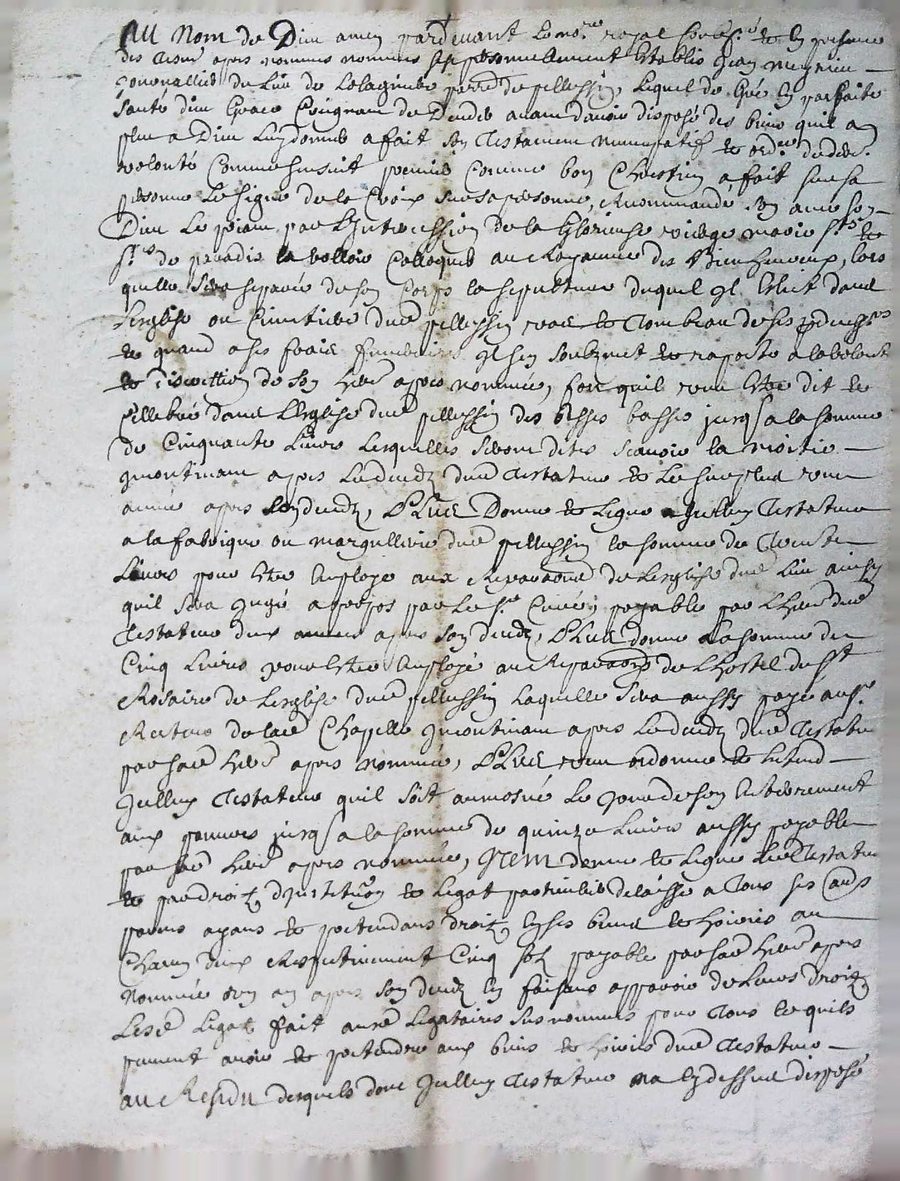 Au Nom de Dieu amen pardevant le no.re royal soubs.né et En presence
des tesm. apres nommés personnellement Estably Jean
du Lieu de par.sse de pellussin, Lequel de Gré En parfaite
santé dieu Grace Craignant de deceder avant d'avoir disposé des biens quil a
pleu a Dieu Luy donner a fait son Testament nuncupatif et ord.re de der.re
volonté Comme sensuit premier Comme bon Chrestien a fait sur sa
personne Le signe de la Croix Recommandé son ame a
Dieu Le priant par L'Intercession de la Glorieuse vierge marie s.ts et
s.tes de paradis la volloir Colloquer au Royaume des Bien heureux, lors
quelle sera separée de son Corps la sepulture duquel il Eslict dans
Lesglise ou Cimetiere dud pellussin et Tombeau de ses predecess.rs
et quand a ses frais funeraires il sen soubzmet et raporte a la volonté
et discrettion de son heritier apres nommée, fors quil veut Estre dit et
cellebré dans L'Esglise dud pellussin des Messes basses jusq. a la somme
de Cinquante Livres Lesquelles seront dites scavoir la moitié
incontinant apres Le deceds dud Testateur et Le surplus
année apres son deceds, Plus Donne et Legue Icelluy Testateur
a la fabrique ou marguillerie dud pellussin la somme de Trente
Livres pour Estre Employé aux Reparations de Lesglise dud Lieu ainsy
quil sera Jugé a propos par Le s.r Curé, payable par L'her dud
Testateur deux années apres son deceds, Plus donne la somme de
Cinq Livres pour Estre Employé au Reparations de L'hostel du St
Rosaire de Lesglise dud pellussin Laquelle sera aussy payé aux s.rs
Recteurs de lad Chapelle Incontinant apres Le deceds dud Testateur
par sad her apres nommée, Plus veut ordonne et Entend
Icelluy Testateur quil soit aumosné Le Jour de son Enterrement
aux pauvres jusq. a la somme de quinze Livres aussy payable
par sad her apres nommée, Item donne et Legue Led Testateur
et par droit d'institution et Legat particulier delaisse a Tous ses Auts
parens ayans et pretendans droit En ses biens et hoiries au
Chacun d'eux Respectivement Cinq sols payable par sad her apres
nommée un an apres son deceds En faisant apparoir de Leurs droitz
Lesd Legat fait aux Legataires susnommés pour Tous ce quils
peuvent avoir et pretendre aux biens et hoiries dud Testateur
au Residu desquels dont Icelluy Testateur na Cy dessus disposé